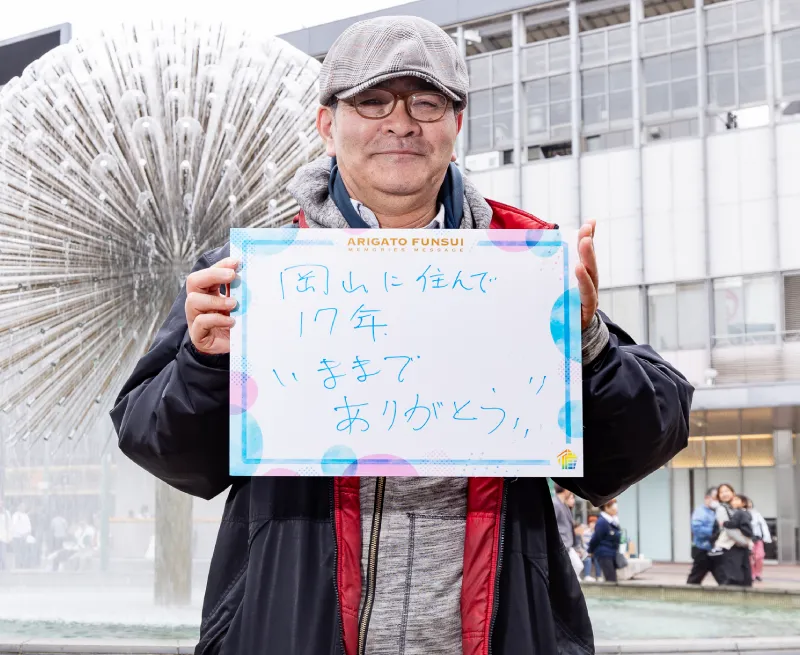 ARIGATO FUNSUI
MEMORIES MESSAGE
岡山に住んで
17年
いままで
ありがとう